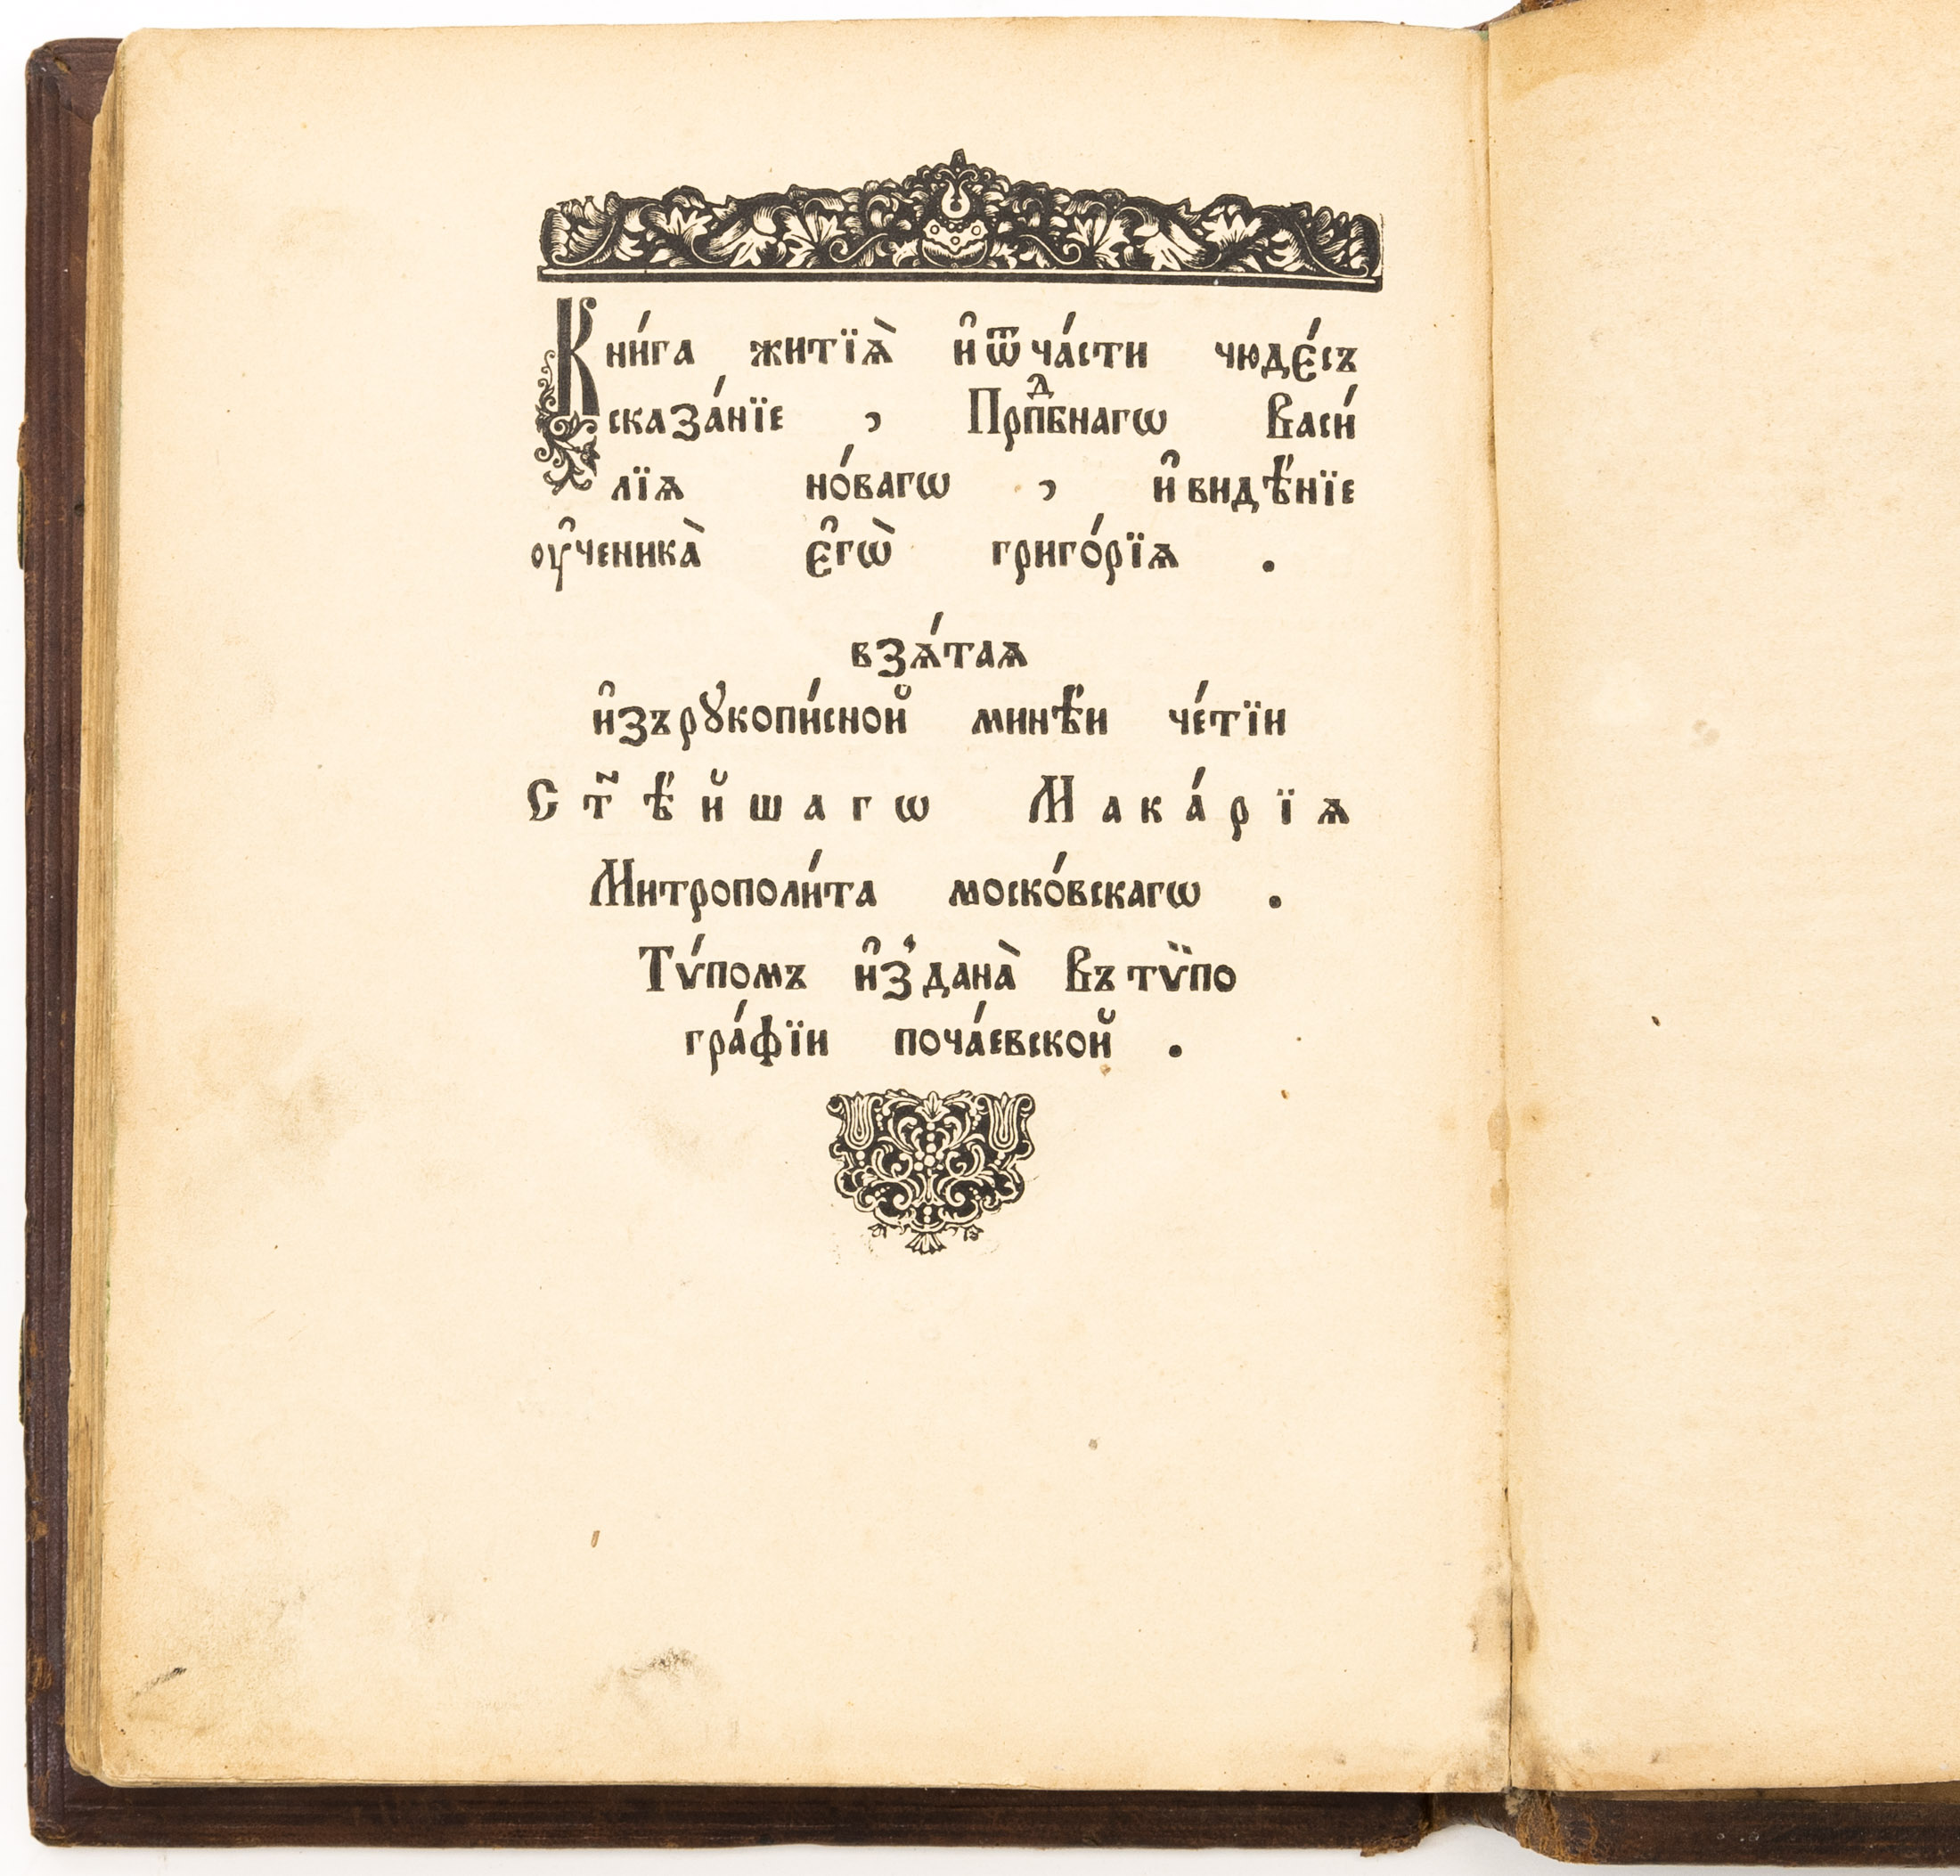 Кни́га житїѧ̀ и҆ѿ ча́сти чюде́съ
сказа́нїе , Прпⷣбнагѡ Васи́
лїѧ но́вагѡ , и҆ видѣ́нїе
оу҆ченика̀ є҆гѡ̀ григо́рїѧ .
взѧ́таѧ
и҆зъ рꙋкопи́сной минѣ́и че́тїи
Ст҃ѣ́йшагѡ Мака́рїѧ
Митрополи́та моско́вскагѡ .
Тѵ́помъ и҆з̾дана̀ Въ тѷпо
гра́фїи поча́евской .